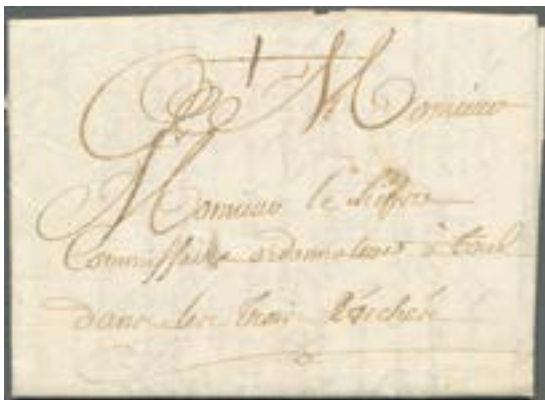 A Monsieur
Monsieur le
Commissaire ordonnateur à Toul
dans les trois Evechés